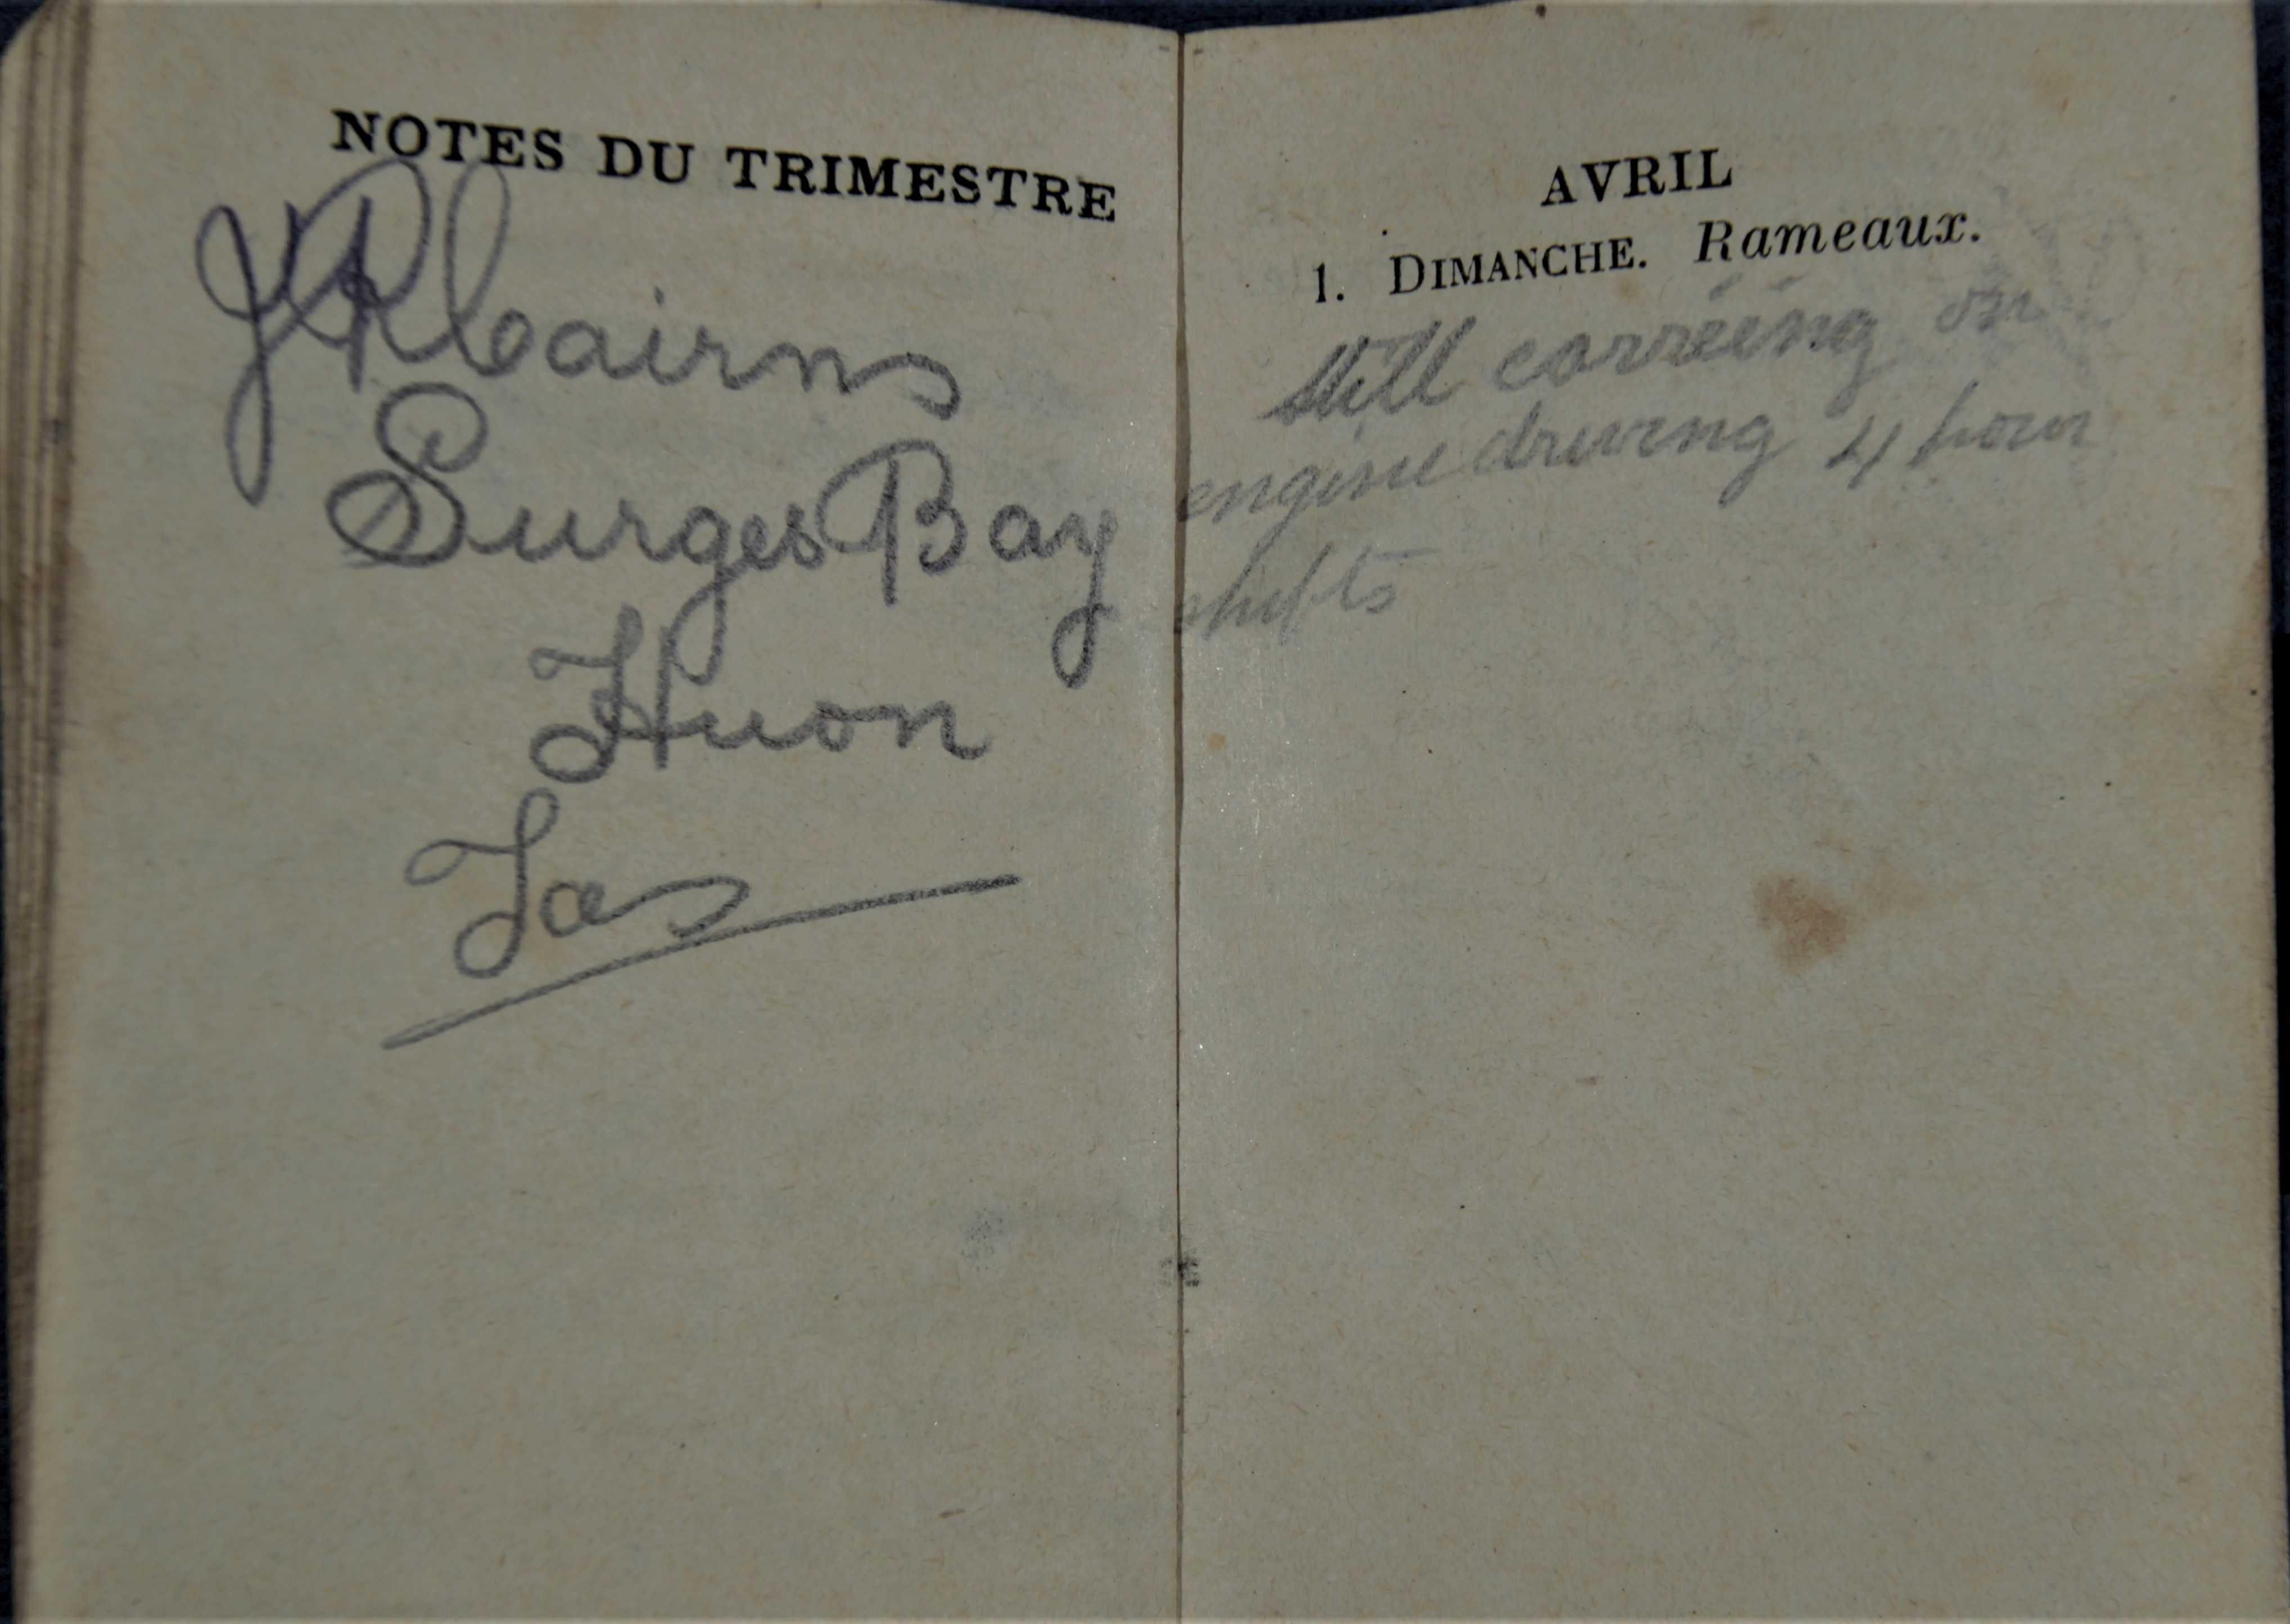 NOTES DU TRIMESTRE
JR Cairns
Surges Bay
Huon
Tas
AVRIL
1. DIMANCHE. Rameaux.
Still carrieing on
engine driving 4 hour
shifts